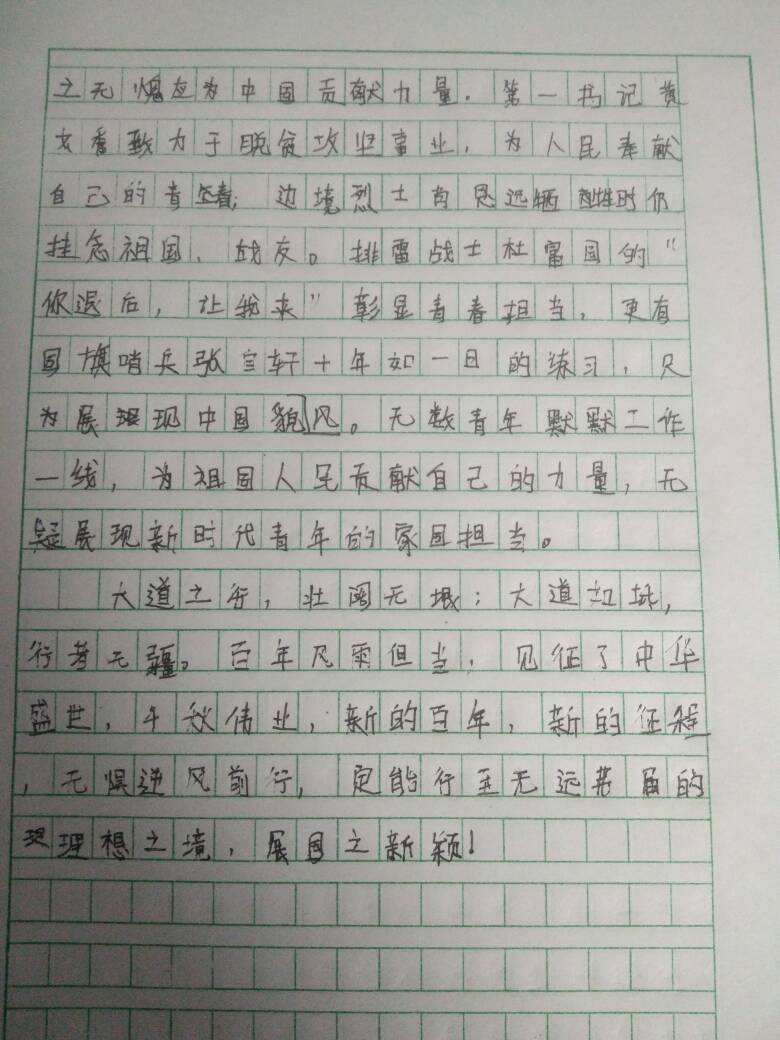 之无愧应为中国贡献力量.第一书记黄
文秀致力于脱贫攻坚事业,为人民奉献
自己的青春;边境烈士肖思远牺牲时仍
挂念祖国、战友。排雷战士杜富国的“
你退后,让我来”彰显青春担当,更有
国旗哨兵张自轩十年如一日的练习,只
为展现中国貌风。无数青年默默工作
一线,为祖国人民贡献自己的力量,无
疑展现新时代青年的家国担当。
大道之行,壮阔无垠;大道如砥,
行者无疆。百年风雨但当,见征了中华
盛世,千秋伟业,新的百年,新的征程
,无惧逆风前行,定能行至无远弗届的
理想之境,展国之新颖!